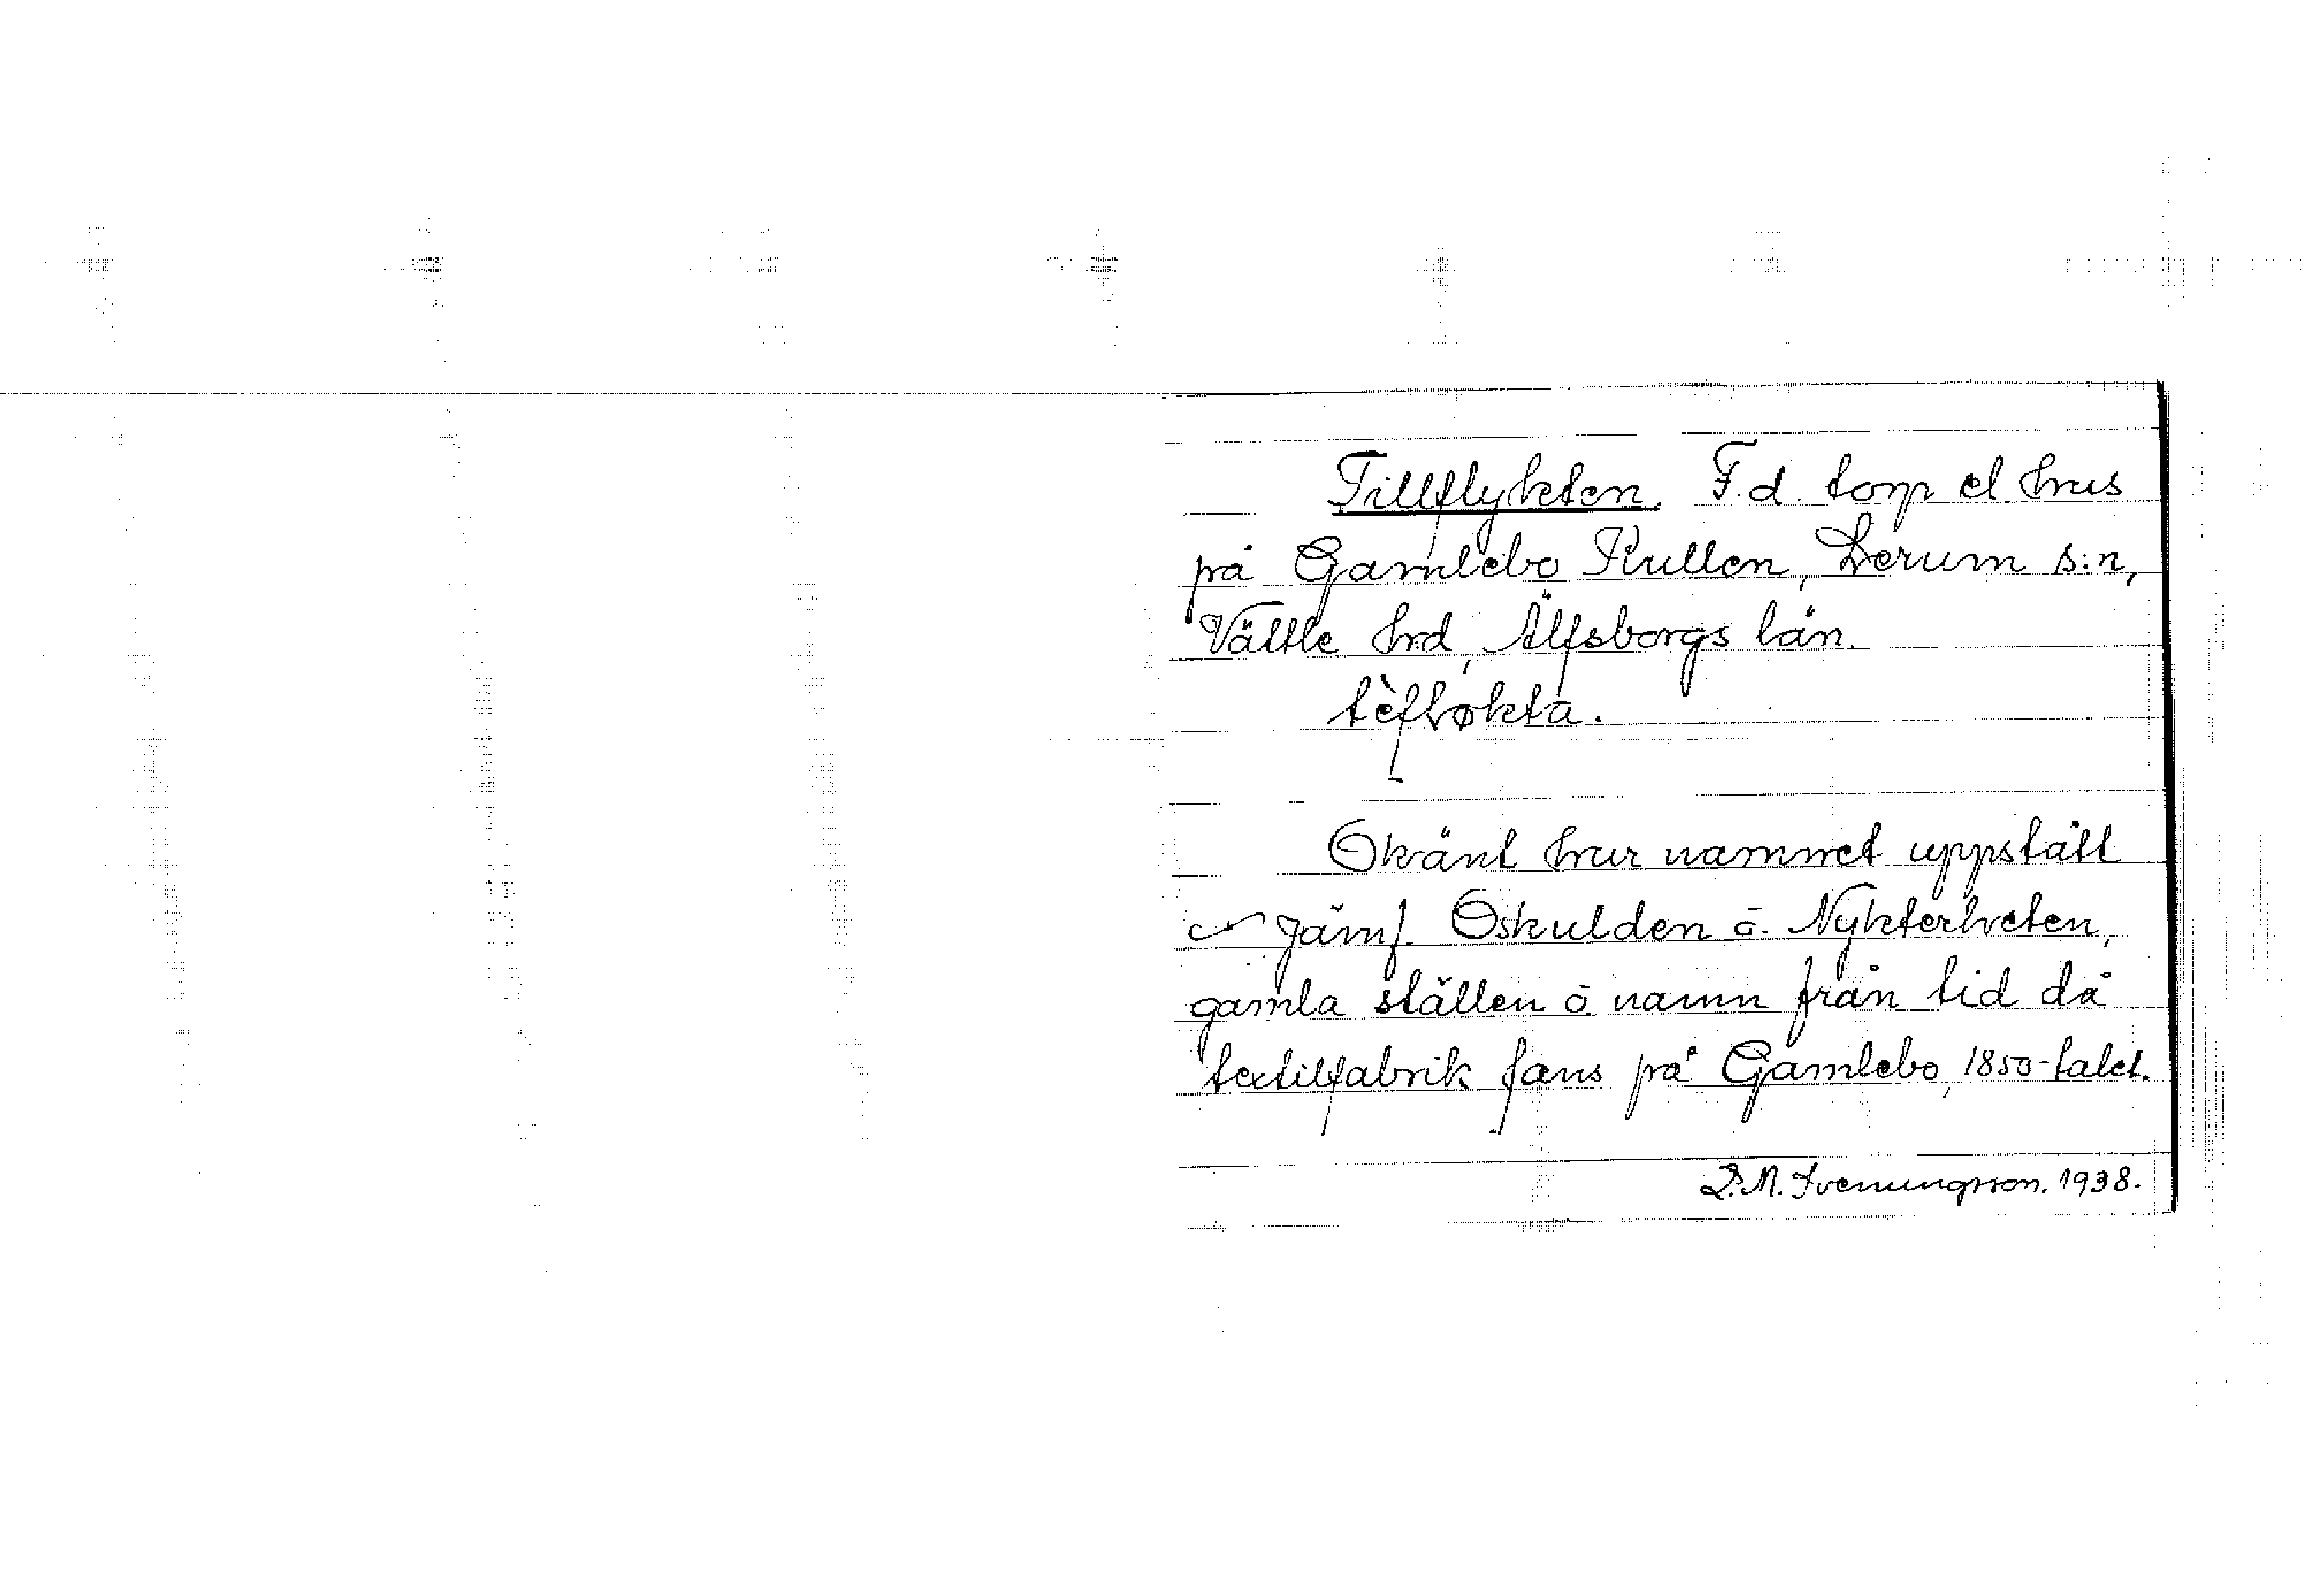 Tillflykten. F.d. torp el hus
på Gamlebo Kullen, Lerum s:n,
Vättle hrd, Älfsborgs län.
tèfløkta.
Okänt hur namnet uppstått
Jämf. Oskulden o. Nykterheten,
gamla ställen o namn från tid då
textilfabrik fans på Gamlebo, 1850-talet.
Svenungsson. 1938.